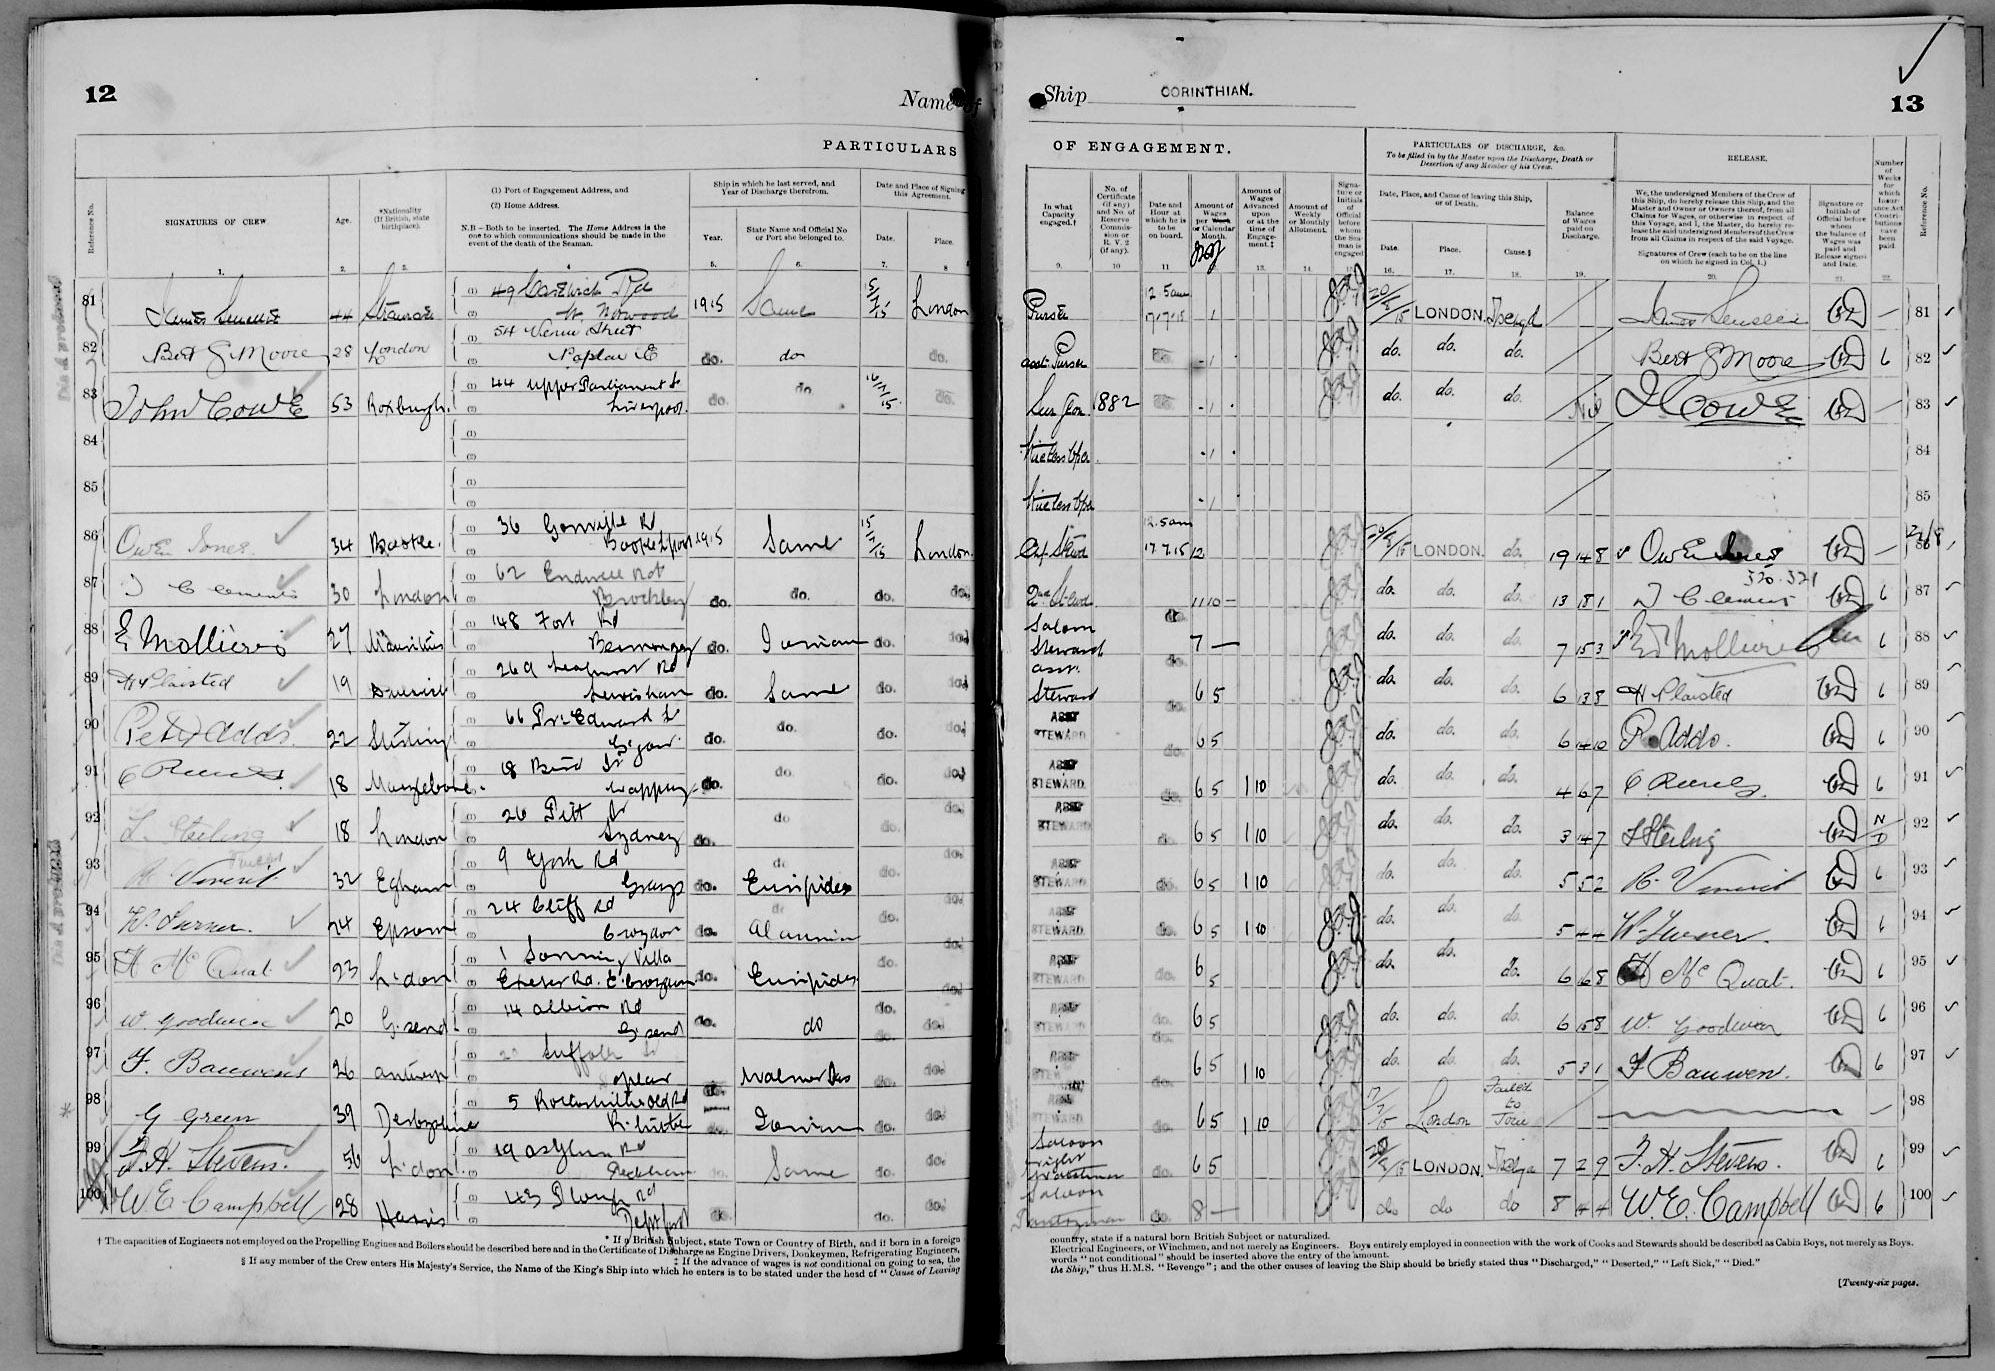 12
Name of
PARTICULARS
Reference No.
SIGNATURES OF CREW
Age.
*Nationality (If British, state birthplace).
(1) Port of Engagement Address, and
(2) Home Address.
N.B – Both to be inserted. The Home Address is the one to which communications should be made in the event of the death of the Seaman.
Ship in which he last served, and Year of Discharge therefrom.
Year.
State Name and Official No or Port she belonged to.
Date and Place of Signing this Agreement.
Date.
Place.
1. 2. 3. 4 5. 6. 7. 8
81 James 44 Stranraer 49 Rd W. Norwood 1915 Same 15/7/15 London
82 Bert G Moore 28 London 54 Venue Street Poplar E do. do do.
83 John Cowe 53 Roxburgh. 44 Upper Parliament St Liverpool. do. do. 16/7/15 do.
84
85
86 Owen Jones 34 Bootle. 36 Gonville Rd Bootle Lpool 1915 Same 15/7/15 London.
87 T Clements 30 London 62 Endwell Rd Brockley do. do. do. do.
88 E Mollieres 27 Mauritius 148 Fort Rd Bermondsey do. Ionian do. do.
89 H Plaisted 19 269 Rd Lewisham do. Same do. do.
90 Peter Addo. 22 Stirling 66 Pr. Edward St do. do. do. do.
91 C Reeves 18 Marylebone. 18 St Wapping do. do do. do.
92 L. Sterling 18 London 26 Pitt St Sydney do. do do. do.
93 R Vincent 32 Egham 9 York Rd Grays do. Euripides do. do.
94 W. Turner. 24 Epsom 24 Cliff Rd Croydon do. Alaunia do. do.
95 H McQuat. 23 L'don 1 Villa Exeter Rd. E. Croydon do. Euripides do. do.
96 W. Goodwin 20 G'send 14 Albion Rd G'send do. do do. do.
97 F. Bauwens 26 Antwerp Suffolk St Poplar do. Walmer Cas do. do.
98 G Green 39 Derbyshire 5 Old Rd do. Ionian do. do.
99 F. H. Stevens. 56 L'don 19 Asylum Rd Peckham do. Same do. do.
100 W. E. Campbell 28 Harris 43 Plough Rd Deptford do. do. do.
* If a British Subject, state Town or Country of Birth, and if born in a foreign
† The capacities of Engineers not employed on the Propelling Engines and Boilers should be described here and in the Certificate of Discharge as Engine Drivers, Donkeymen, Refrigerating Engineers,
‡ If the advance of wages is not conditional on going to sea, the
§ If any member of the Crew enters His Majesty's Service, the Name of the King's Ship into which he enters is to be stated under the head of "Cause of Leaving
Ship CORINTHIAN.
13
OF ENGAGEMENT.
PARTICULARS OF DISCHARGE, &c.
To be filled in by the Master upon the Discharge, Death or Desertion of any Member of his Crew.
RELEASE.
In what Capacity engaged.†
No. of Certificate (if any) and No. of Reserve Commission or R. V. 2 (if any).
Date and Hour at which he is to be on board.
Amount of Wages per Week or Calendar Month.
Amount of Wages Advanced upon or at the time of Engagement.‡
Amount of Weekly or Monthly Allotment.
Signature or Initials of Official before whom the Seaman is engaged
Date, Place, and Cause of leaving this Ship, or of Death.
Date.
Place.
Cause.§
Balance of Wages paid on Discharge.
We, the undersigned Members of the Crew of this Ship, do hereby release this Ship, and the Master and Owner or Owners thereof, from all Claims for Wages, or otherwise in respect of this Voyage, and I, the Master, do hereby release the said undersigned Members of the Crew from all Claims in respect of the said Voyage.
Signatures of Crew (each to be on the line on which he signed in Col. 1.)
Signature or Initials of Official before whom the balance of Wages was paid and Release signed and Date.
Number of Weeks for which Insurance Act Contributions have been paid
Reference No.
9. 10 11 13. 14. 15 16. 17. 18. 19. 20. 21. 22.
Purser 12.5am 17.7.15 1 LONDON. Disch'd 81
Asst Purser do. 1 do. do. do. Bert G Moore 6 82
Surgeon 1882 do. 1 do. do. do. Nil J Cowe 83
Wireless Opr 1 84
Wireless Opr 1 85
Chf Stewd 12.5am 17.7.15 12 LONDON. do. 19 14 8 Owen Jones 86
2nd Stewd 11 10 – do. do. do. 13 18 1 T Clements 320.321 6 87
Saloon Steward do. 7 – do. do. do. 7 15 3 Ed Mollieres 6 88
Asst. Steward do. 6 5 do. do. do. 6 13 8 H Plaisted 6 89
ASST STEWARD do. 6 5 do. do. do. 6 14 10 P. Addo. 6 90
ASST STEWARD do. 6 5 1 10 do. do. do. 4 6 7 C Reeves. 6 91
ASST STEWARD 6 5 1 10 do. do. do. 3 14 7 L Sterling N/D 92
ASST STEWARD do. 6 5 1 10 do. do. do. 5 5 2 R. Vincent 6 93
ASST STEWARD do. 6 5 1 10 do. do. do. 5 4 4 W. Turner. 6 94
ASST STEWARD do. 6 5 do. do. do. 6 6 8 H McQuat. 6 95
ASST STEWARD do. 6 5 do. do. do. 6 15 8 W. Goodwin 6 96
ASST STEWARD do. 6 5 1 10 do. do. do. 5 3 1 F Bauwens. 6 97
STEWARD do. 6 5 1 10 17/7/15 London Failed to Join 98
Saloon Night Watchman do. 6 5 LONDON. 7 2 9 F. H. Stevens. 6 99
Saloon Pantryman do. 8 – do do do 8 4 4 W. E. Campbell 6 100
country, state if a natural born British Subject or naturalized.
Electrical Engineers, or Winchmen, and not merely as Engineers. Boys entirely employed in connection with the work of Cooks and Stewards should be described as Cabin Boys, not merely as Boys.
words "not conditional" should be inserted above the entry of the amount.
the Ship," thus H.M.S. "Revenge"; and the other causes of leaving the Ship should be briefly stated thus "Discharged," "Deserted," "Left Sick," "Died."
[Twenty-six pages.